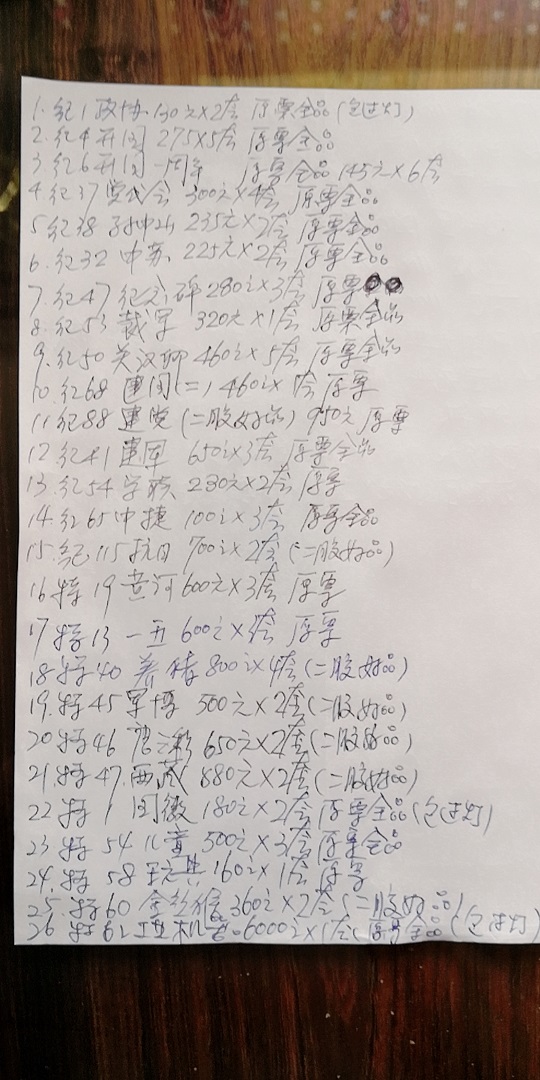 1. 纪1 政协 130元×2套 原票全品(包过灯)
2. 纪4 开国 275×5套 原票全品
3. 纪6 开国一周年 原票全品 145元×6套
4. 纪37 党代会 300元×4套 原票全品
5. 纪38 孙中山 235元×2套 原票全品
6. 纪32 中苏 225元×2套 原票全品
7. 纪47 纪念碑 280元×3套 原票
8. 纪53 裁军 320元×1套 原票全品
9. 纪50 关汉卿 460元×5套 原票全品
10. 纪68 建国(二) 460元× 套 原票
11 纪88 建党 (二胶好品) 950元 原票
12 纪41 建军 650元×3套 原票全品
13. 纪54 学联 230元×2套 原票
14. 纪65 中捷 100元×3套 原票全品
15. 纪115 抗日 700元×2套 (二胶好品)
16 特19 黄河 600元×3套 原票
17 特13 一五 600元× 套 原票
18. 特40 养猪 800元×4套(二胶好品)
19. 特45 军博 500元×2套(二胶好品)
20 特46 唐三彩 650元×2套(二胶好品)
21. 特47. 西藏 880元×2套(二胶好品)
22 特1 国徽 180元×2套 原票全品(包过灯)
23 特54 儿童 500元×3套 原票全品
24. 特58 玩具 160元×1套 原票
25. 特60 金丝猴 360元×2套(二胶好品)
26 特62 工业机 6000元×1套 原票全品(包过灯)